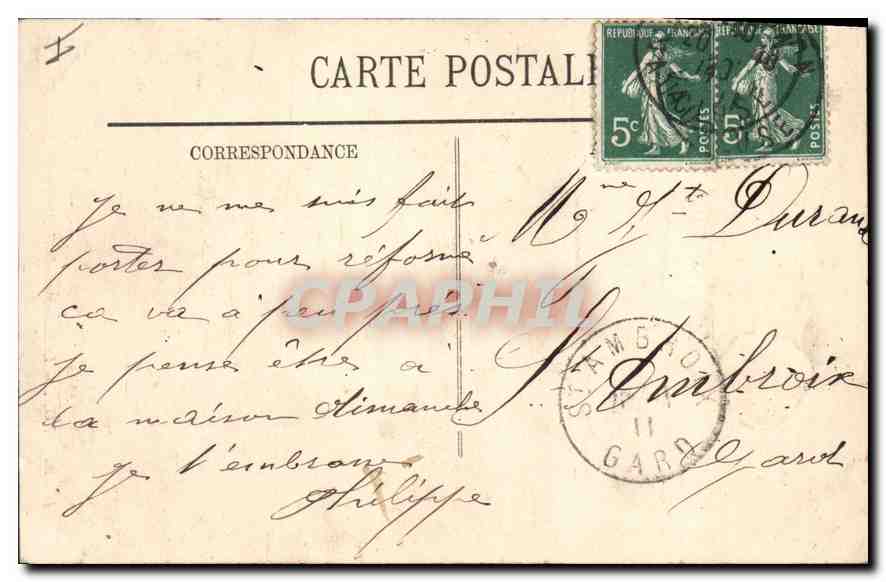 CARTE POSTALE
RÉPUBLIQUE FRANÇAISE
5c
POSTES
RÉPUBLIQUE FRANÇAISE
5c
POSTES
CORRESPONDANCE
je ne me suis fait
porter pour réformé
ça va à peu près
je pense être à
la maison dimanche
je t'embrasse
Philippe
Mme Durand
St Ambroix
Gard
ST AMBROIX
11
GARD
CPAPHIL